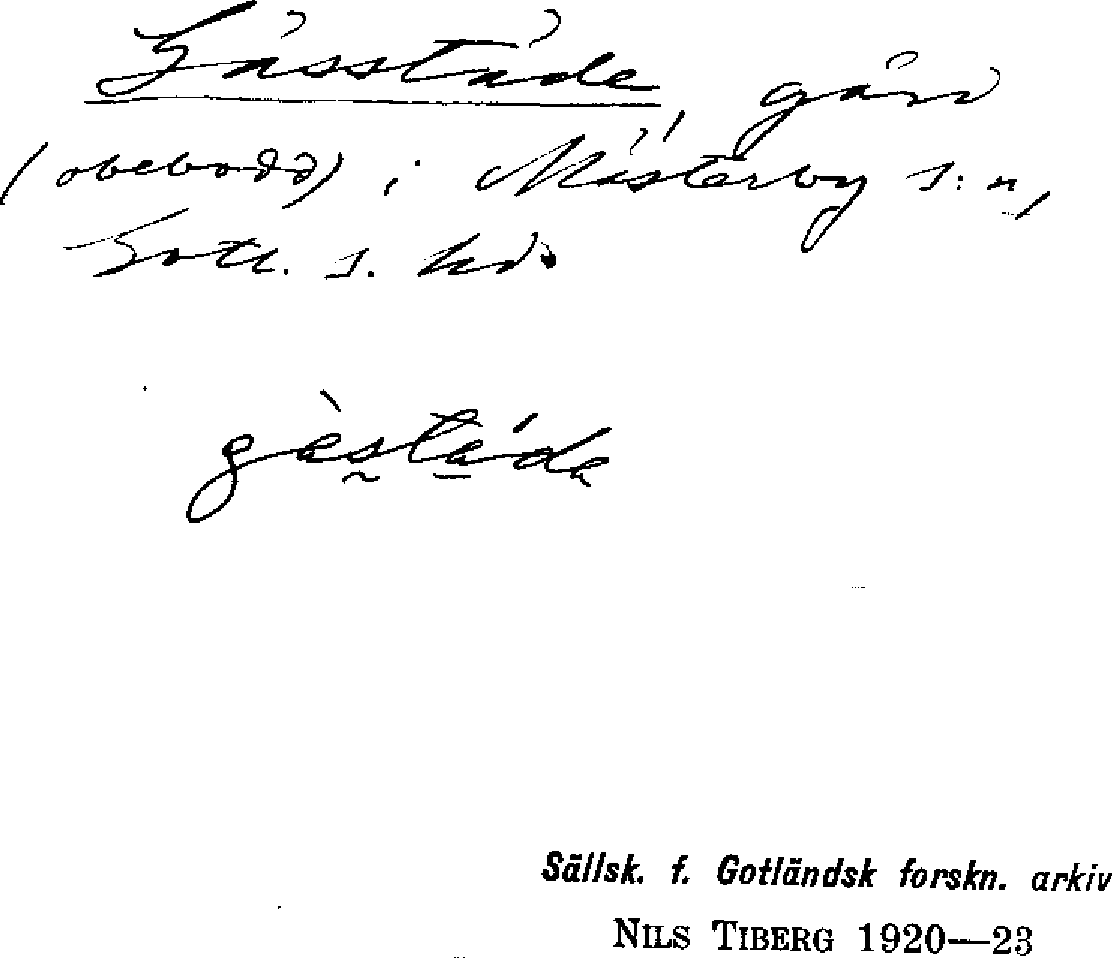 Gåsståde, gård
(obebodd) i Mästerby s:n,
Gotl. s. hd.
gåståde
Sällsk. f. Gotländsk forskn. arkiv
NILS TIBERG 1920—23